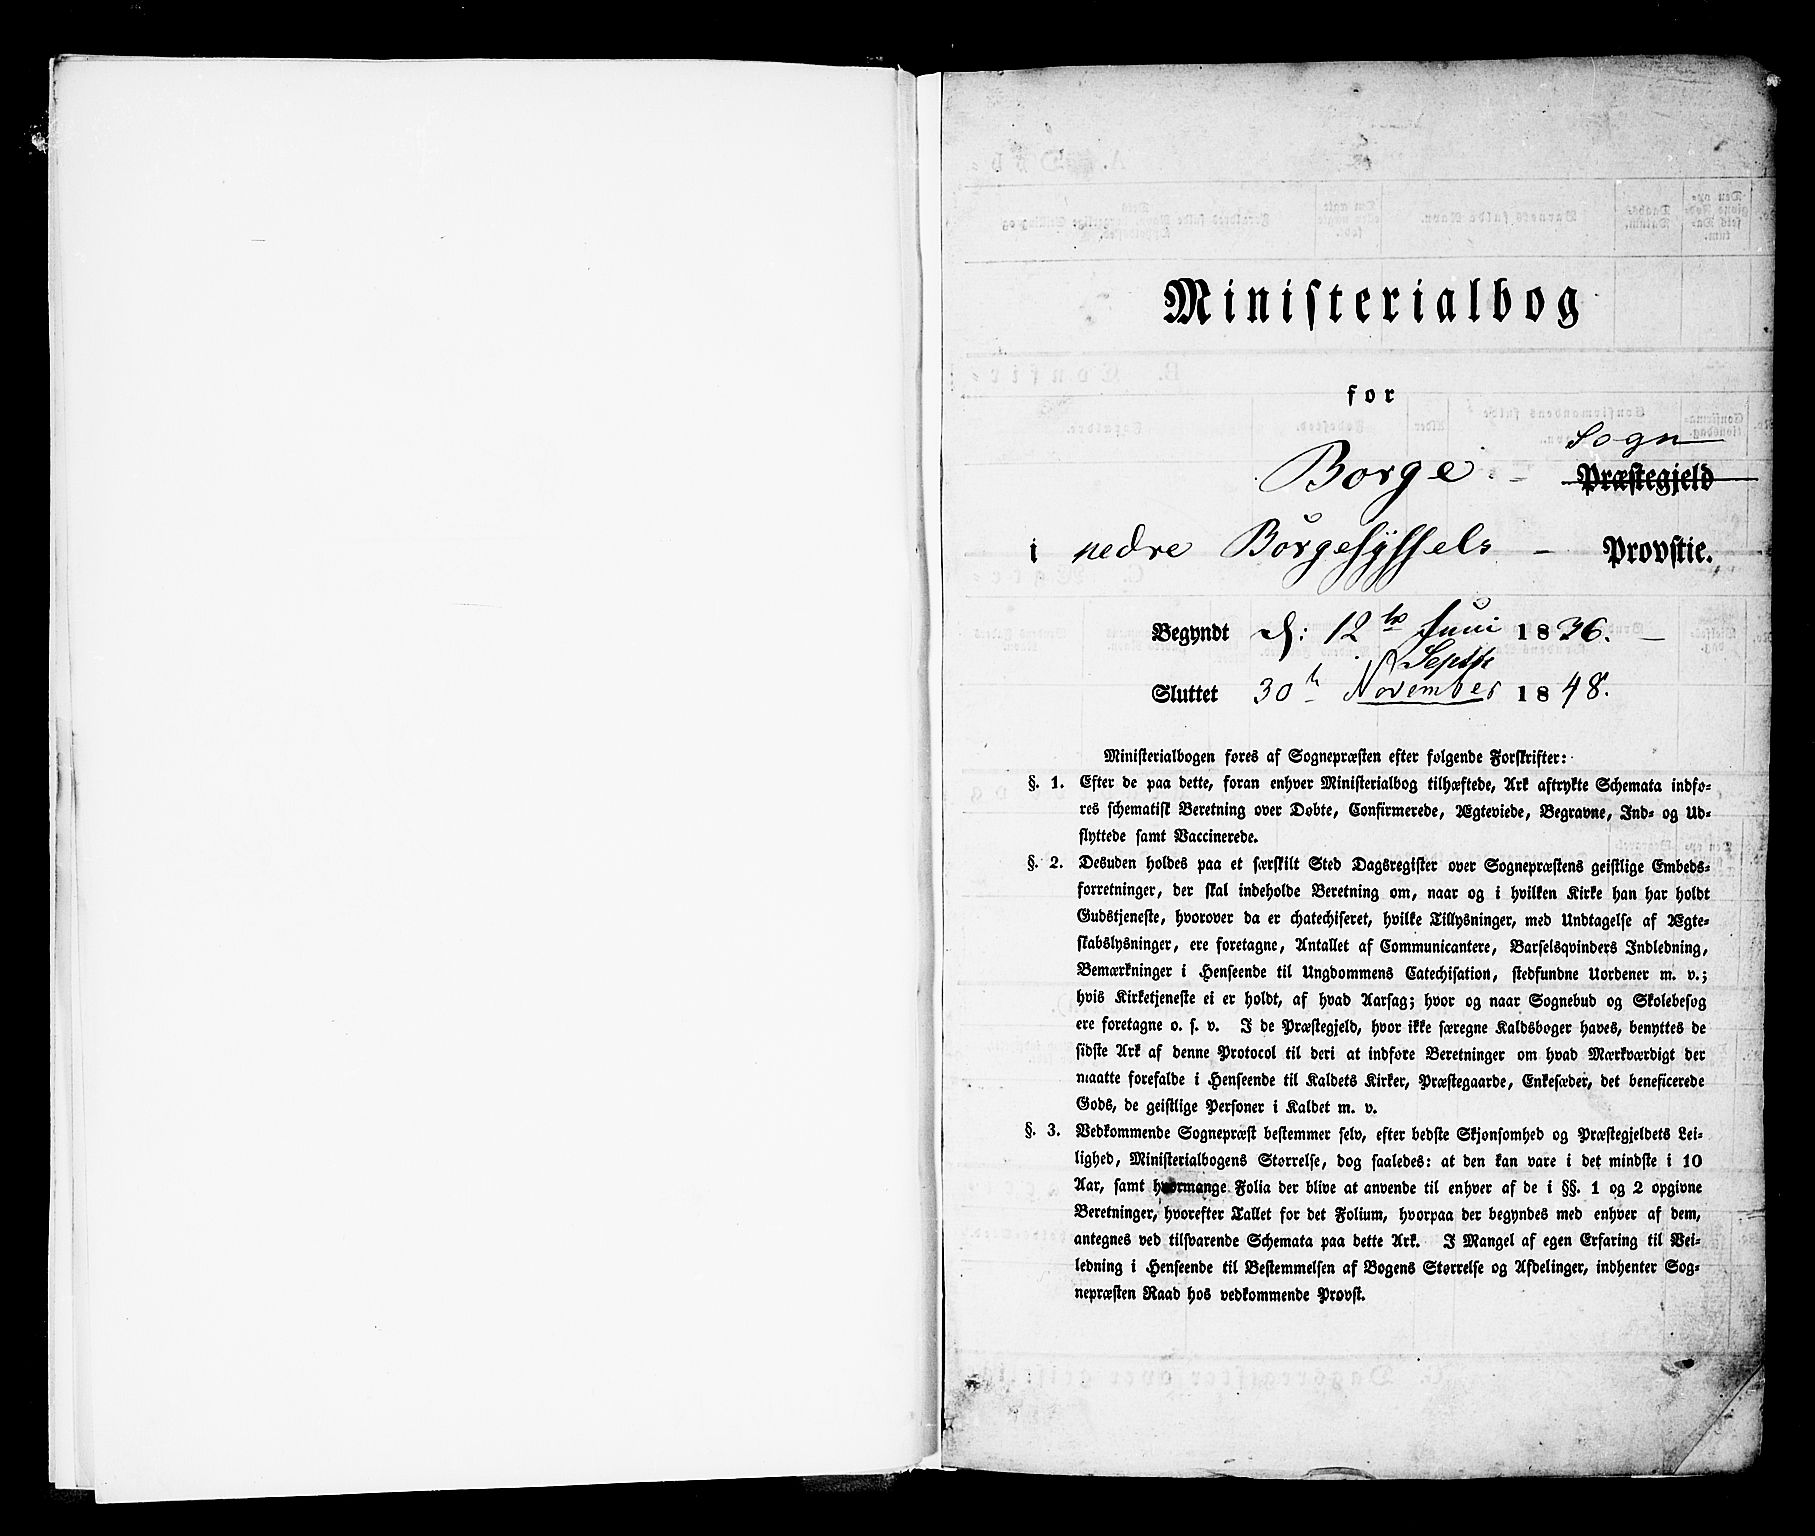 Ministerialbog
for
Borge - Sogn
Præstegjeld
i nedre Borgesyssels - Provstie.
Begyndt d: 12te Juni 1836.
Septr
Sluttet 30th November 1848.
Ministerialbogen føres af Sognepræsten efter følgende Forskrifter:
§. 1. Efter de paa dette, foran enhver Ministerialbog tilhæftede, Ark aftrykte Schemata indfø-
res schematisk Beretning over Døbte, Confirmerede, Ægteviede, Begravne, Ind- og Ud-
flyttede samt Vaccinerede.
§. 2. Desuden holdes paa et særskilt Sted Dagsregister over Sognepræstens geistlige Embeds-
forretninger, der skal indeholde Beretning om, naar og i hvilken Kirke han har holdt
Gudstjeneste, hvorover da er chatechiseret, hvilke Tillysninger, med Undtagelse af Ægte-
skabslysninger, ere foretagne, Antallet af Communicantere, Barselsqvinders Indledning,
Bemærkninger i Henseende til Ungdommens Catechisation, stedfundne Uordener m. v.;
hvis Kirketjeneste ei er holdt, af hvad Aarsag; hvor og naar Sognebud og Skolebesøg
ere foretagne o. s. v. I de Præstegjeld, hvor ikke særegne Kaldsbøger haves, benyttes de
sidste Ark af denne Protocol til deri at indføre Beretninger om hvad Mærkværdigt der
maatte forefalde i Henseende til Kaldets Kirker, Præstegaarde, Enkesæder, det beneficerede
Gods, de geistlige Personer i Kaldet m. v.
§. 3. Vedkommende Sognepræst bestemmer selv, efter bedste Skjønsomhed og Præstegjeldets Lei-
lighed, Ministerialbogens Størrelse, dog saaledes: at den kan vare i det mindste i 10
Aar, samt hvormange Folia der blive at anvende til enhver af de i §§. 1 og 2 opgivne
Beretninger, hvorefter Tallet for det Folium, hvorpaa der begyndes med enhver af dem,
antegnes ved tilsvarende Schemata paa dette Ark. I Mangel af egen Erfaring til Vei-
ledning i Henseende til Bestemmelsen af Bogens Størrelse og Afdelinger, indhenter Sog-
nepræsten Raad hos vedkommende Provst.